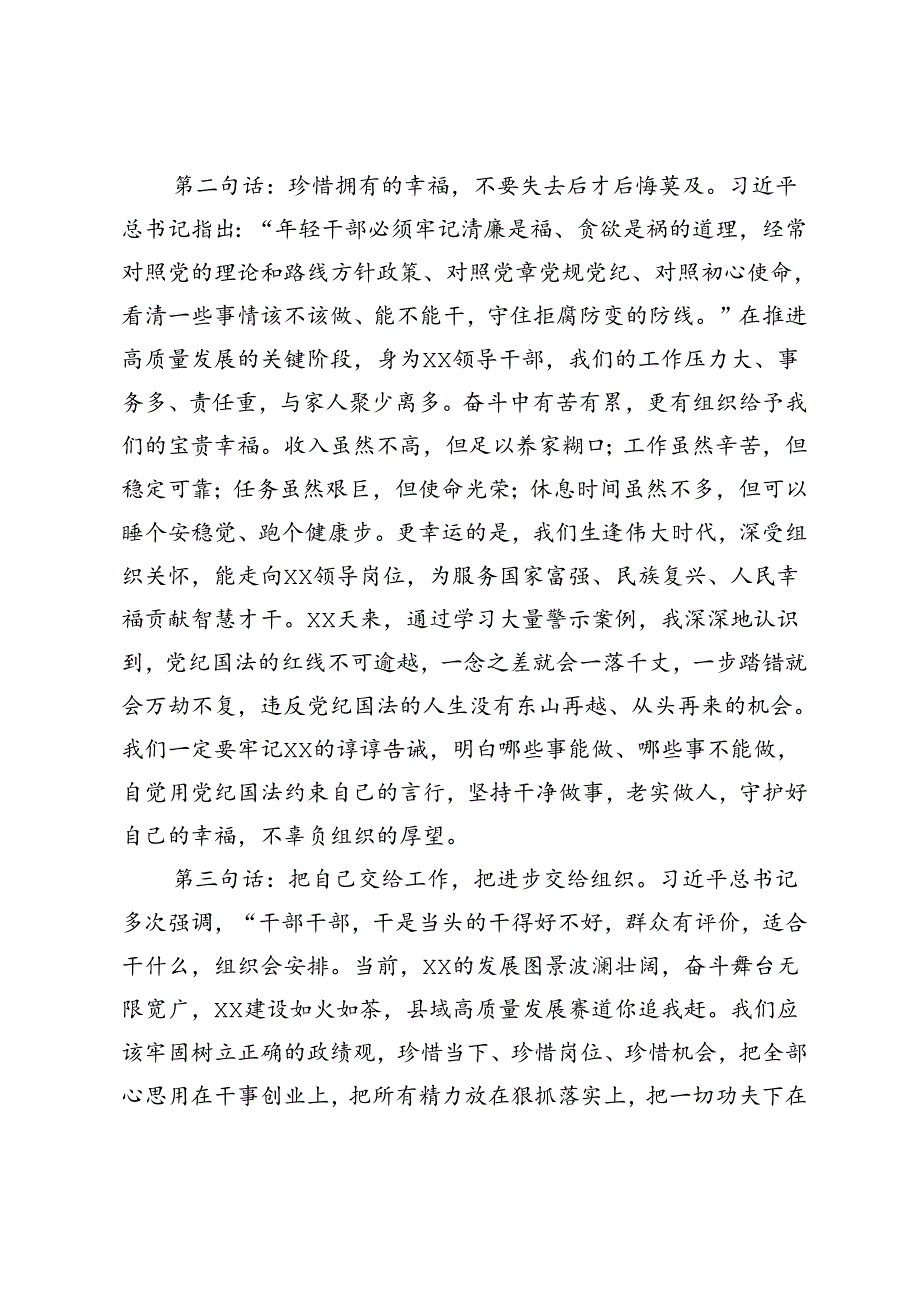 第二句话：珍惜拥有的幸福，不要失去后才后悔莫及。习近平
总书记指出：“年轻干部必须牢记清廉是福、贪欲是祸的道理，经常
对照党的理论和路线方针政策、对照党章党规党纪、对照初心使命，
看清一些事情该不该做、能不能干，守住拒腐防变的防线。”在推进
高质量发展的关键阶段，身为XX领导干部，我们的工作压力大、事
务多、责任重，与家人聚少离多。奋斗中有苦有累，更有组织给予我
们的宝贵幸福。收入虽然不高，但足以养家糊口；工作虽然辛苦，但
稳定可靠；任务虽然艰巨，但使命光荣；休息时间虽然不多，但可以
睡个安稳觉、跑个健康步。更幸运的是，我们生逢伟大时代，深受组
织关怀，能走向XX领导岗位，为服务国家富强、民族复兴、人民幸
福贡献智慧才干。XX天来，通过学习大量警示案例，我深深地认识
到，党纪国法的红线不可逾越，一念之差就会一落千丈，一步踏错就
会万劫不复，违反党纪国法的人生没有东山再越、从头再来的机会。
我们一定要牢记XX的谆谆告诫，明白哪些事能做、哪些事不能做，
自觉用党纪国法约束自己的言行，坚持干净做事，老实做人，守护好
自己的幸福，不辜负组织的厚望。
第三句话：把自己交给工作，把进步交给组织。习近平总书记
多次强调，“干部干部，干是当头的干得好不好，群众有评价，适合
干什么，组织会安排。当前，XX的发展图景波澜壮阔，奋斗舞台无
限宽广，XX建设如火如荼，县域高质量发展赛道你追我赶。我们应
该牢固树立正确的政绩观，珍惜当下、珍惜岗位、珍惜机会，把全部
心思用在干事创业上，把所有精力放在狠抓落实上，把一切功夫下在